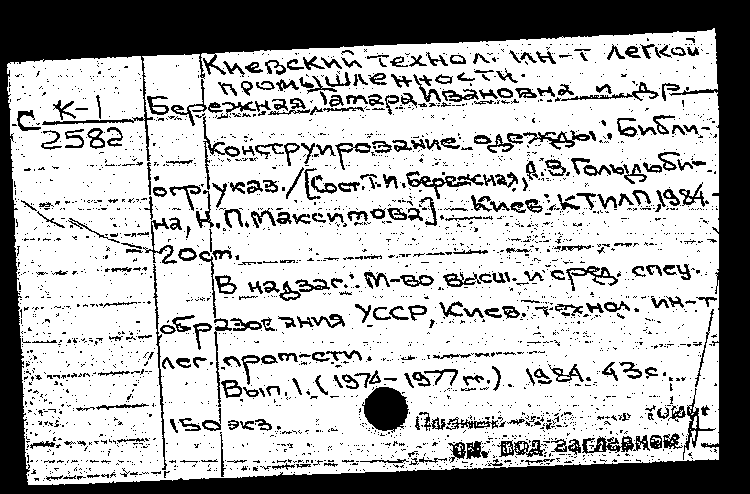 Киевский технол. ин-т легкой
промышленности.
С К-1
2582
Бережная, Тамара Ивановна и др.
Конструирование одежды: Библи-
огр. указ. / [Сост. Т.И. Бережная, А.В. Голыдюби-
на, Н.П. Максимова]. – Киев: КТИЛП, 1984. –
20 см.
В надзаг.: М-во высш. и сред. спец.
образования УССР, Киев. технол. ин-т
лег. пром-сти.
Вып. 1. (1974–1977 гг.). 1984. 43 с.
150 экз.
см. под заглавием